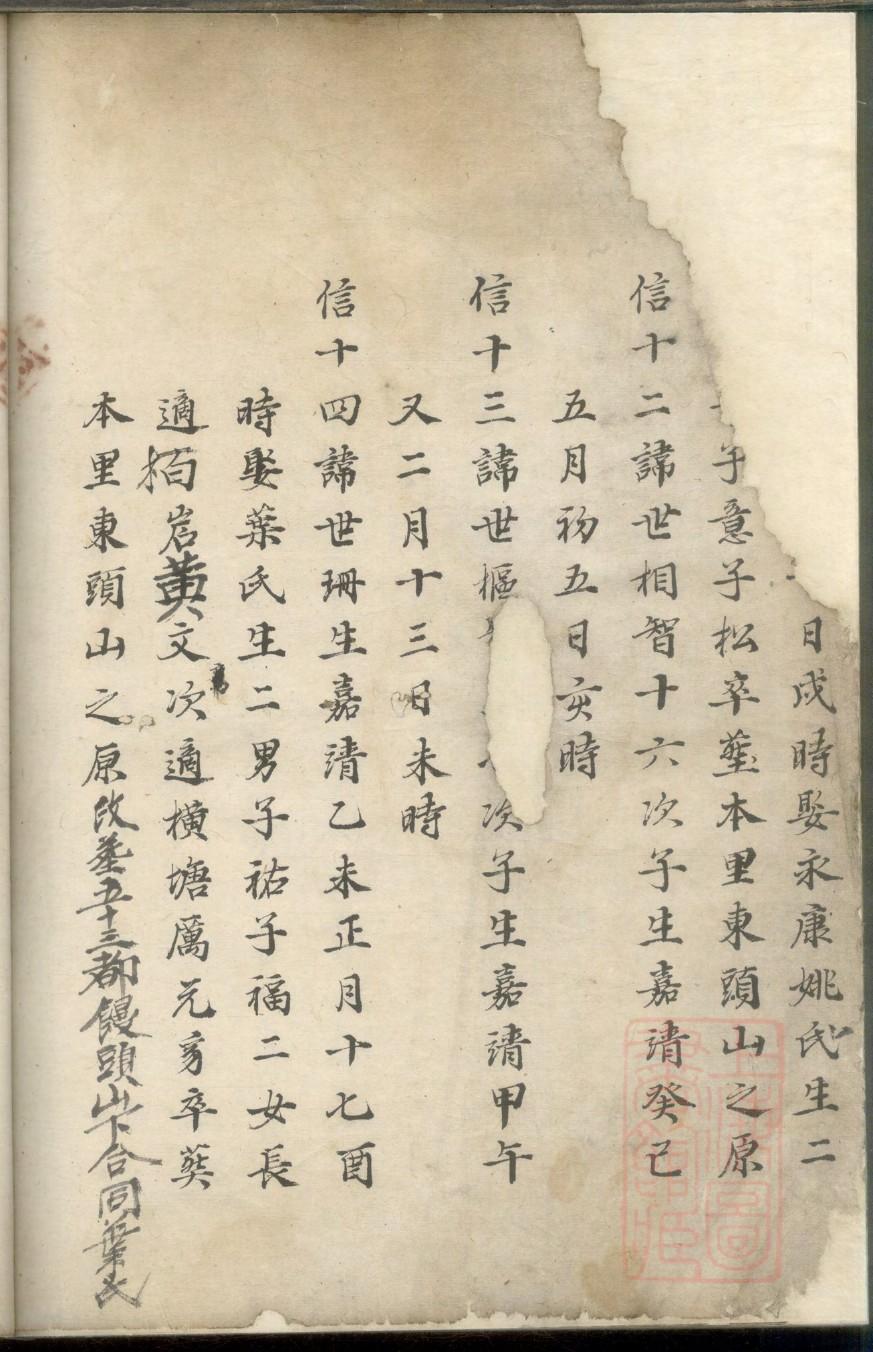 日戌時娶永康姚氏生二
子意子松卒塟本里東頭山之原
信十二諱世相智十六次子生嘉清癸已
五月初五日亥時
信十三諱世樞次子生嘉清甲午
又二月十三日未時
信十四諱世珊生嘉清乙未正月十七酉
時娶葉氏生二男子祐子福二女長
適栢岩黄文次適橫塘厲元亨卒葵
本里東頭山之原改塟五十三都饅頭山下合同葉氏